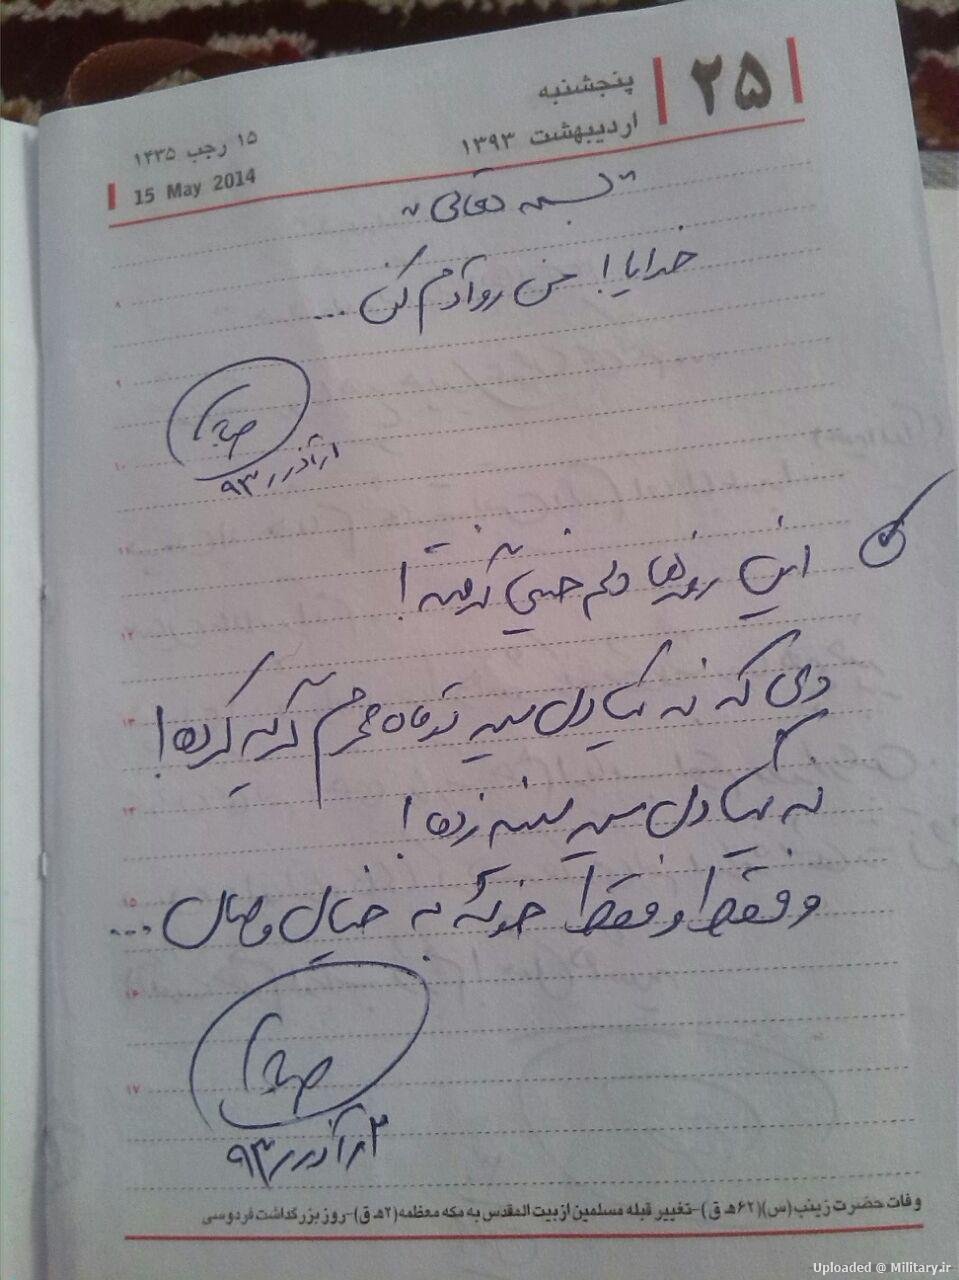 ۲۵
پنجشنبه
اردیبهشت ۱۳۹۳
۱۵ رجب ۱۴۳۵
15 May 2014
"بسمه تعالی"
خدایا! من رو آدم کن ...
۱ر آذر ر ۹۳
این روزها دلم خیلی گرفته!
دلی که نه یک دل سیر تو ماه محرم گریه کرده!
نه یک دل سیر سینه زده!
و فقط و فقط خوشه به خیال وصال ...
۳ر آذر ر ۹۳
۸
۹
۱۰
۱۱
۱۲
۱۳
۱۴
۱۵
۱۶
۱۷
وفات حضرت زینب (س) (۶۲ ه ق)-تغییر قبله مسلمین از بیت المقدس به مکه معظمه (۲ ه ق)-روز بزرگداشت فردوسی
Uploaded @ Military.ir